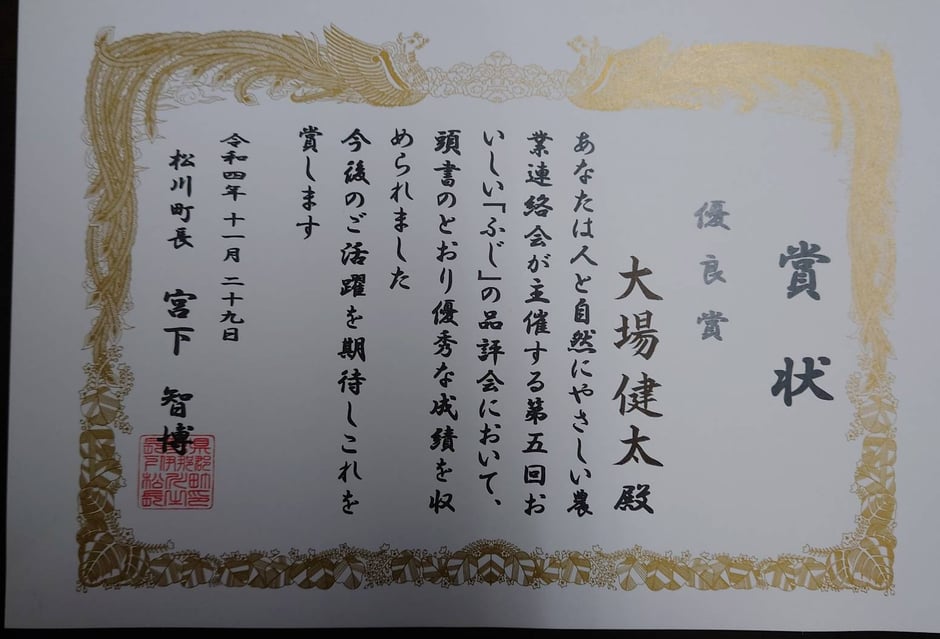 賞状
優良賞
大場健太殿
あなたは人と自然にやさしい農
業連絡会が主催する第五回お
いしい「ふじ」の品評会において、
頭書のとおり優秀な成績を収
められました
今後のご活躍を期待しこれを
賞します
令和四年十一月二十九日
松川町長 宮下智博